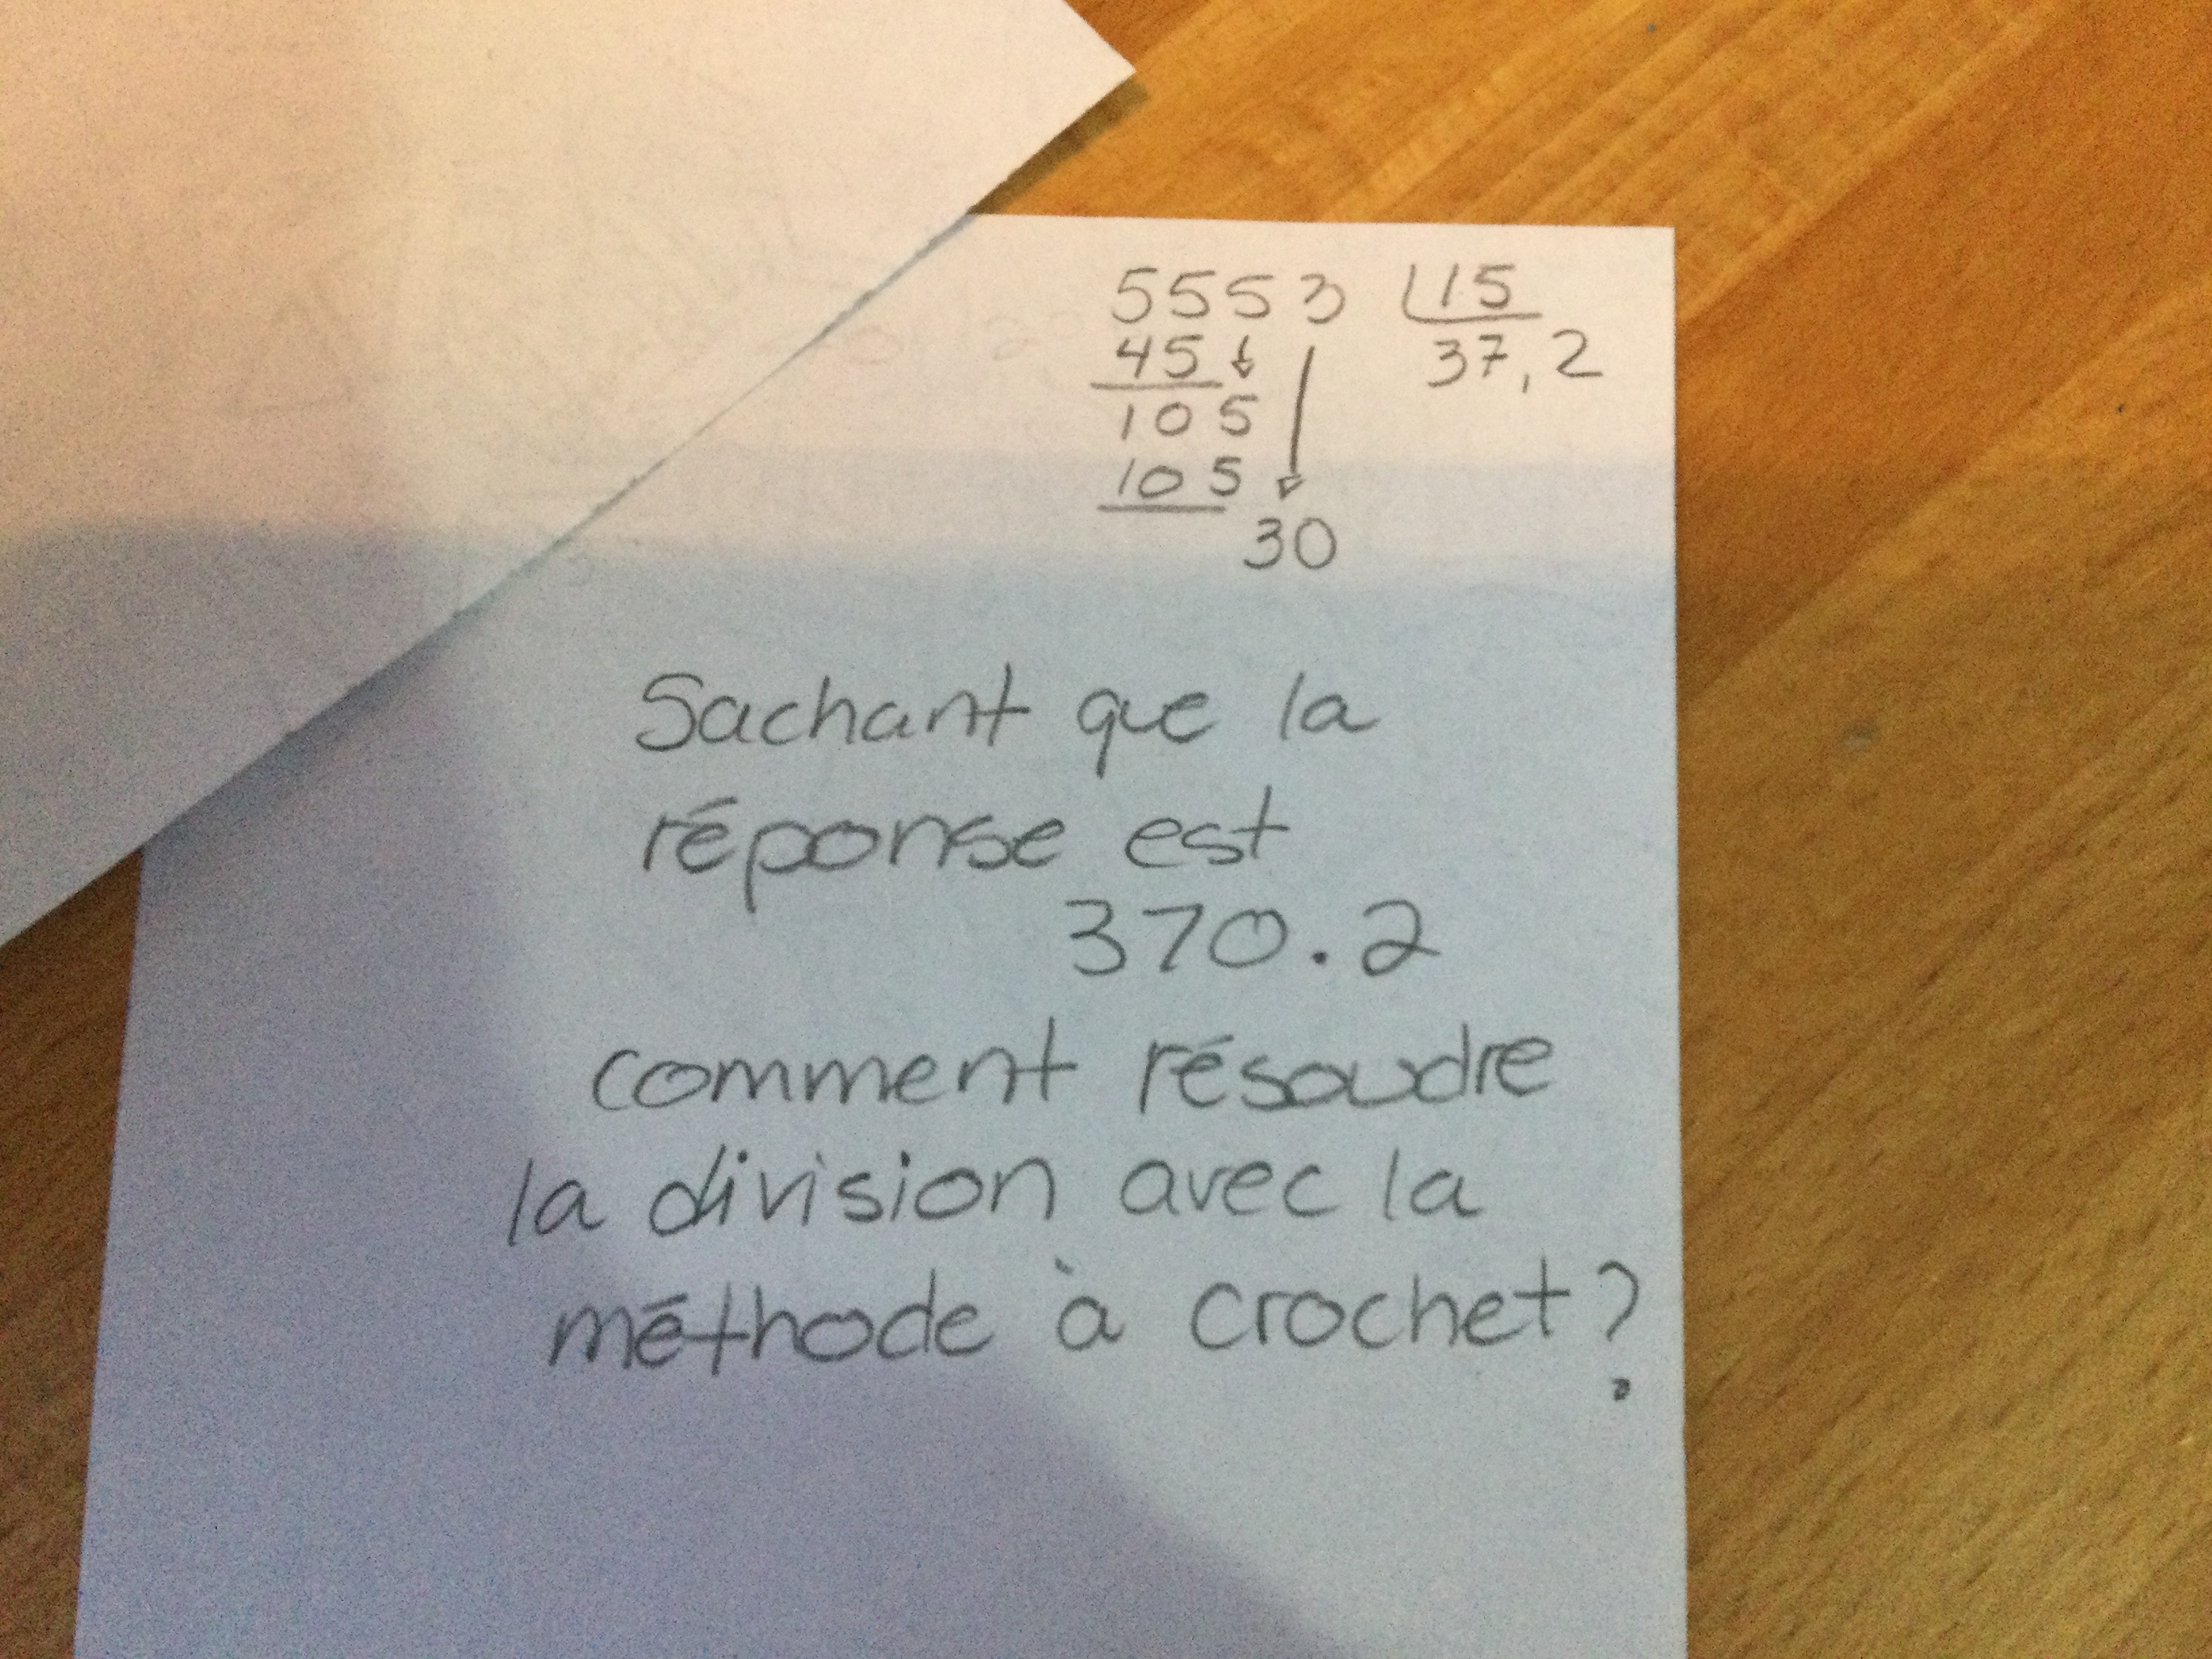 5553 15
45 37,2
105
105
30
Sachant que la
réponse est
370.2
comment résoudre
la division avec la
méthode à crochet?